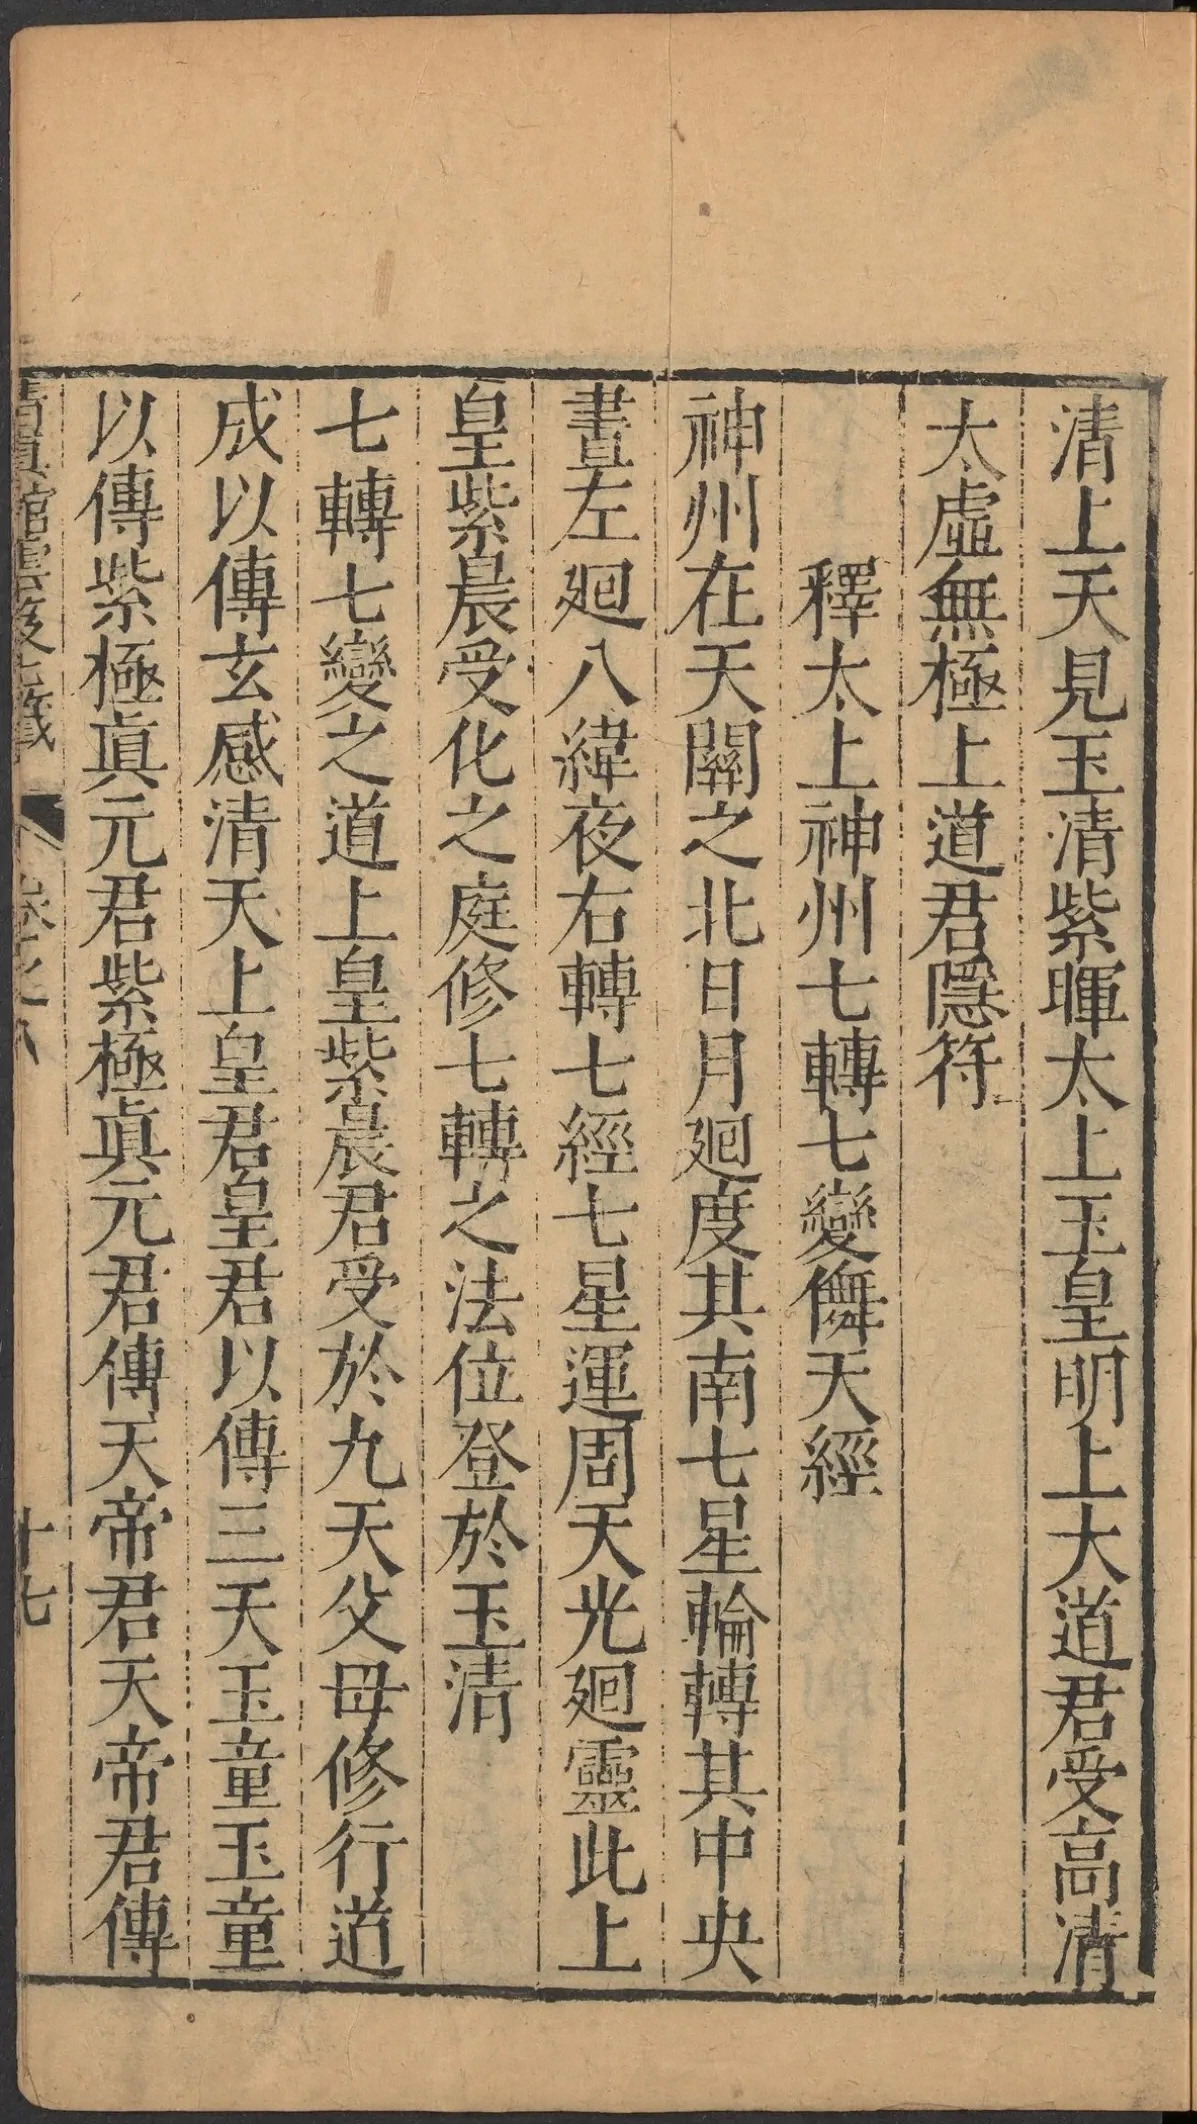 清上天見玉清紫暉太上玉皇明上大道君受高清
太虛無極上道君隱符
釋太上神州七轉七變儛天經
神州在天關之北日月廻度其南七星輪轉其中央
晝左廻八緯夜右轉七經七星運周天光廻靈此上
皇紫晨受化之庭修七轉之法位登於玉清
七轉七變之道上皇紫晨君受於九天父母修行道
成以傳玄感清天上皇君皇君以傳三天玉童玉童
以傳紫極眞元君紫極眞元君傳天帝君天帝君傳
清真館雲笈七籤
卷之八
十七